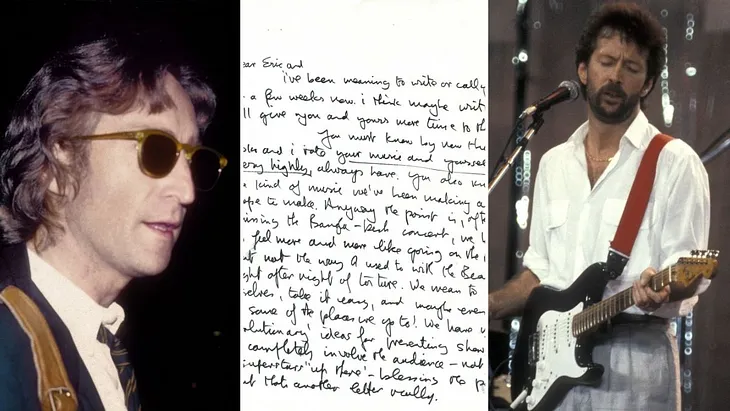 ear Eric and
i've been meaning to write or call y
a few weeks now. i think maybe writ
ll give you and yours more time to th
You must know by now tha
oko and i rate your music and yourself
very highly, always have. You also kn
kind of music we've been making a
ope to make. Anyway the point is, aft
issing the Bangla-Desh concert, we b
feel more and more like going on the
ut not the way I used to with the Bea
ght after night of torture. We mean to
selves, take it easy, and maybe even
some of the places we go to! We have
olutionary' ideas for presenting show
completely involve the audience - not
superstars 'up there' - blessing the p
but thats another letter really.